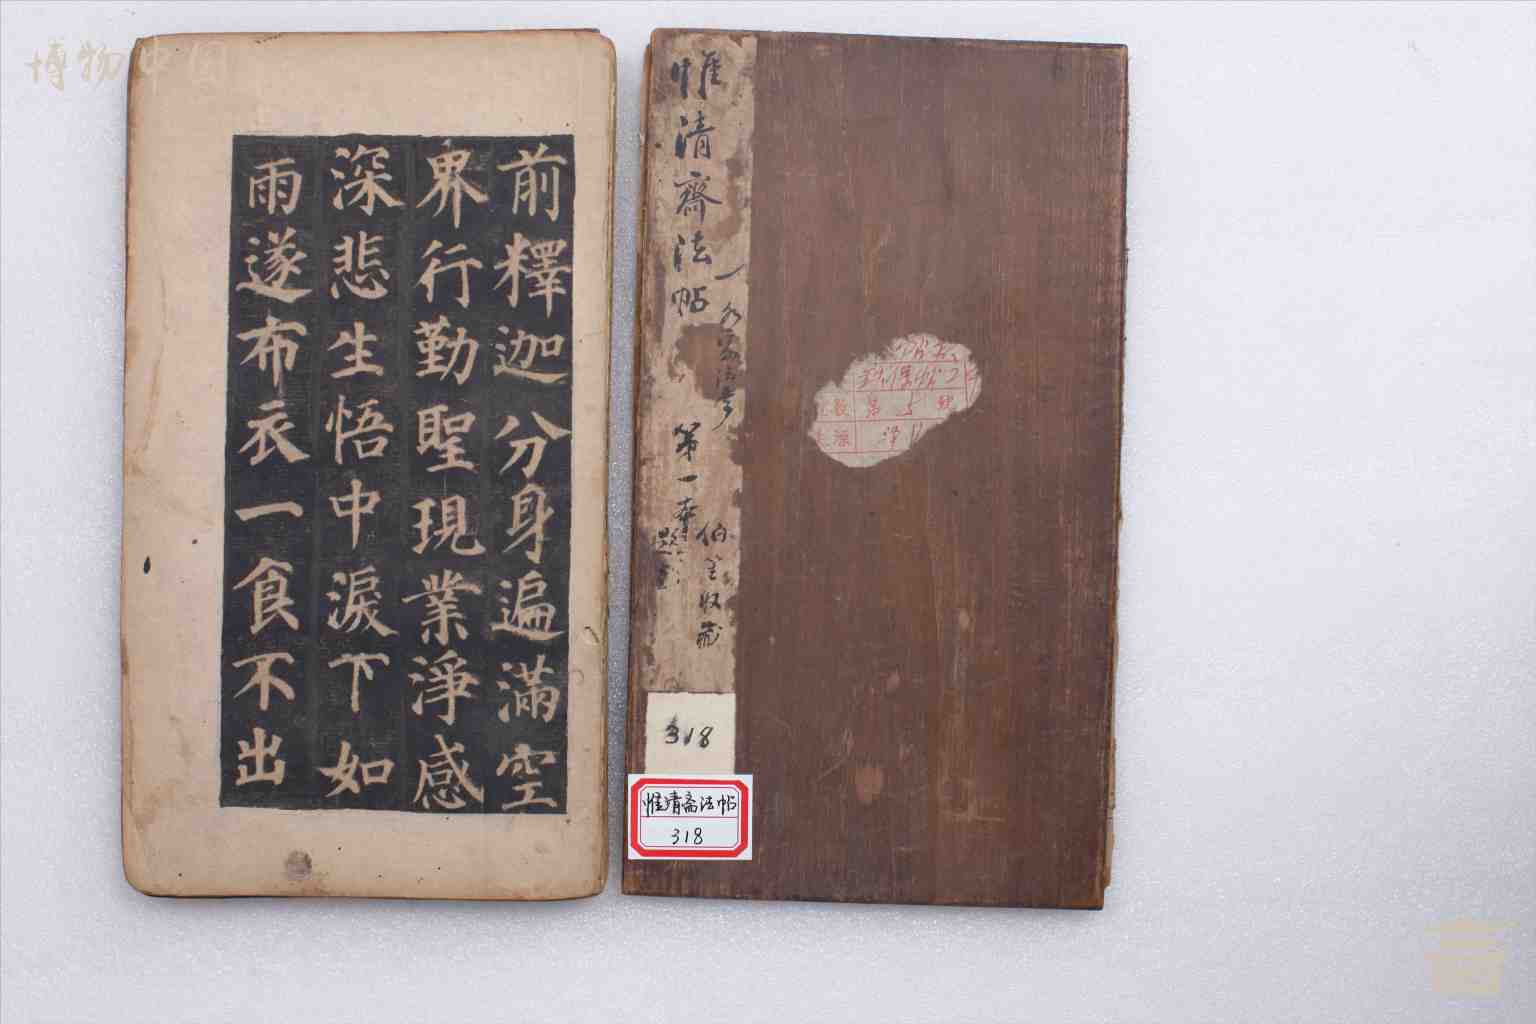 博物中国
前釋迦分身遍滿空
界行勤聖現業淨感
深悲生悟中淚下如
雨遂布衣一食不出
惟清齋法帖
第一本
伯荃收藏
318
惟清斋法帖
318